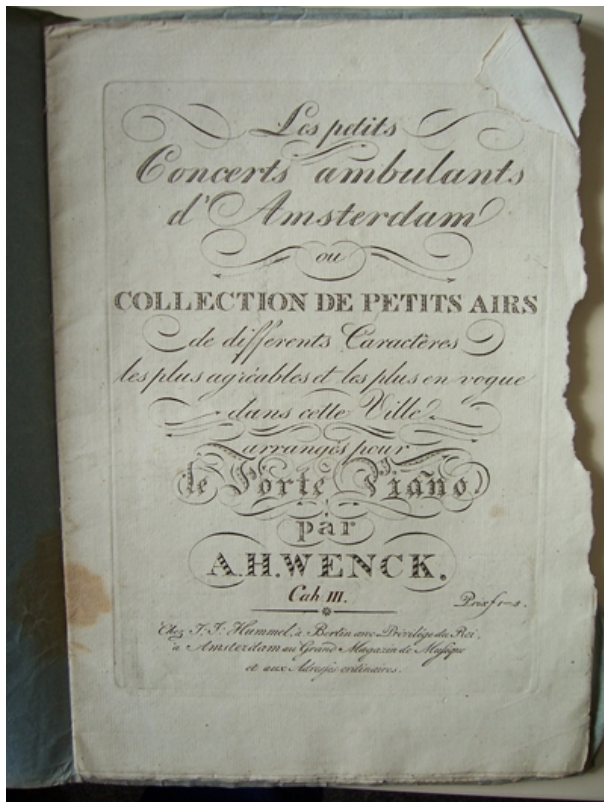 Les petits
Concerts ambulants
d'Amsterdam
ou
COLLECTION DE PETITS AIRS
de differents Caractères
les plus agréables et les plus en vogue
dans cette Ville.
arrangés pour
le Forte Piano
par
A.H.WENCK.
Cah III.
Prix f 1-5.
Chez J.J. Hummel, à Berlin avec Privilége du Roi,
à Amsterdam au Grand Magazin de Musique
et aux Adresses ordinaires.